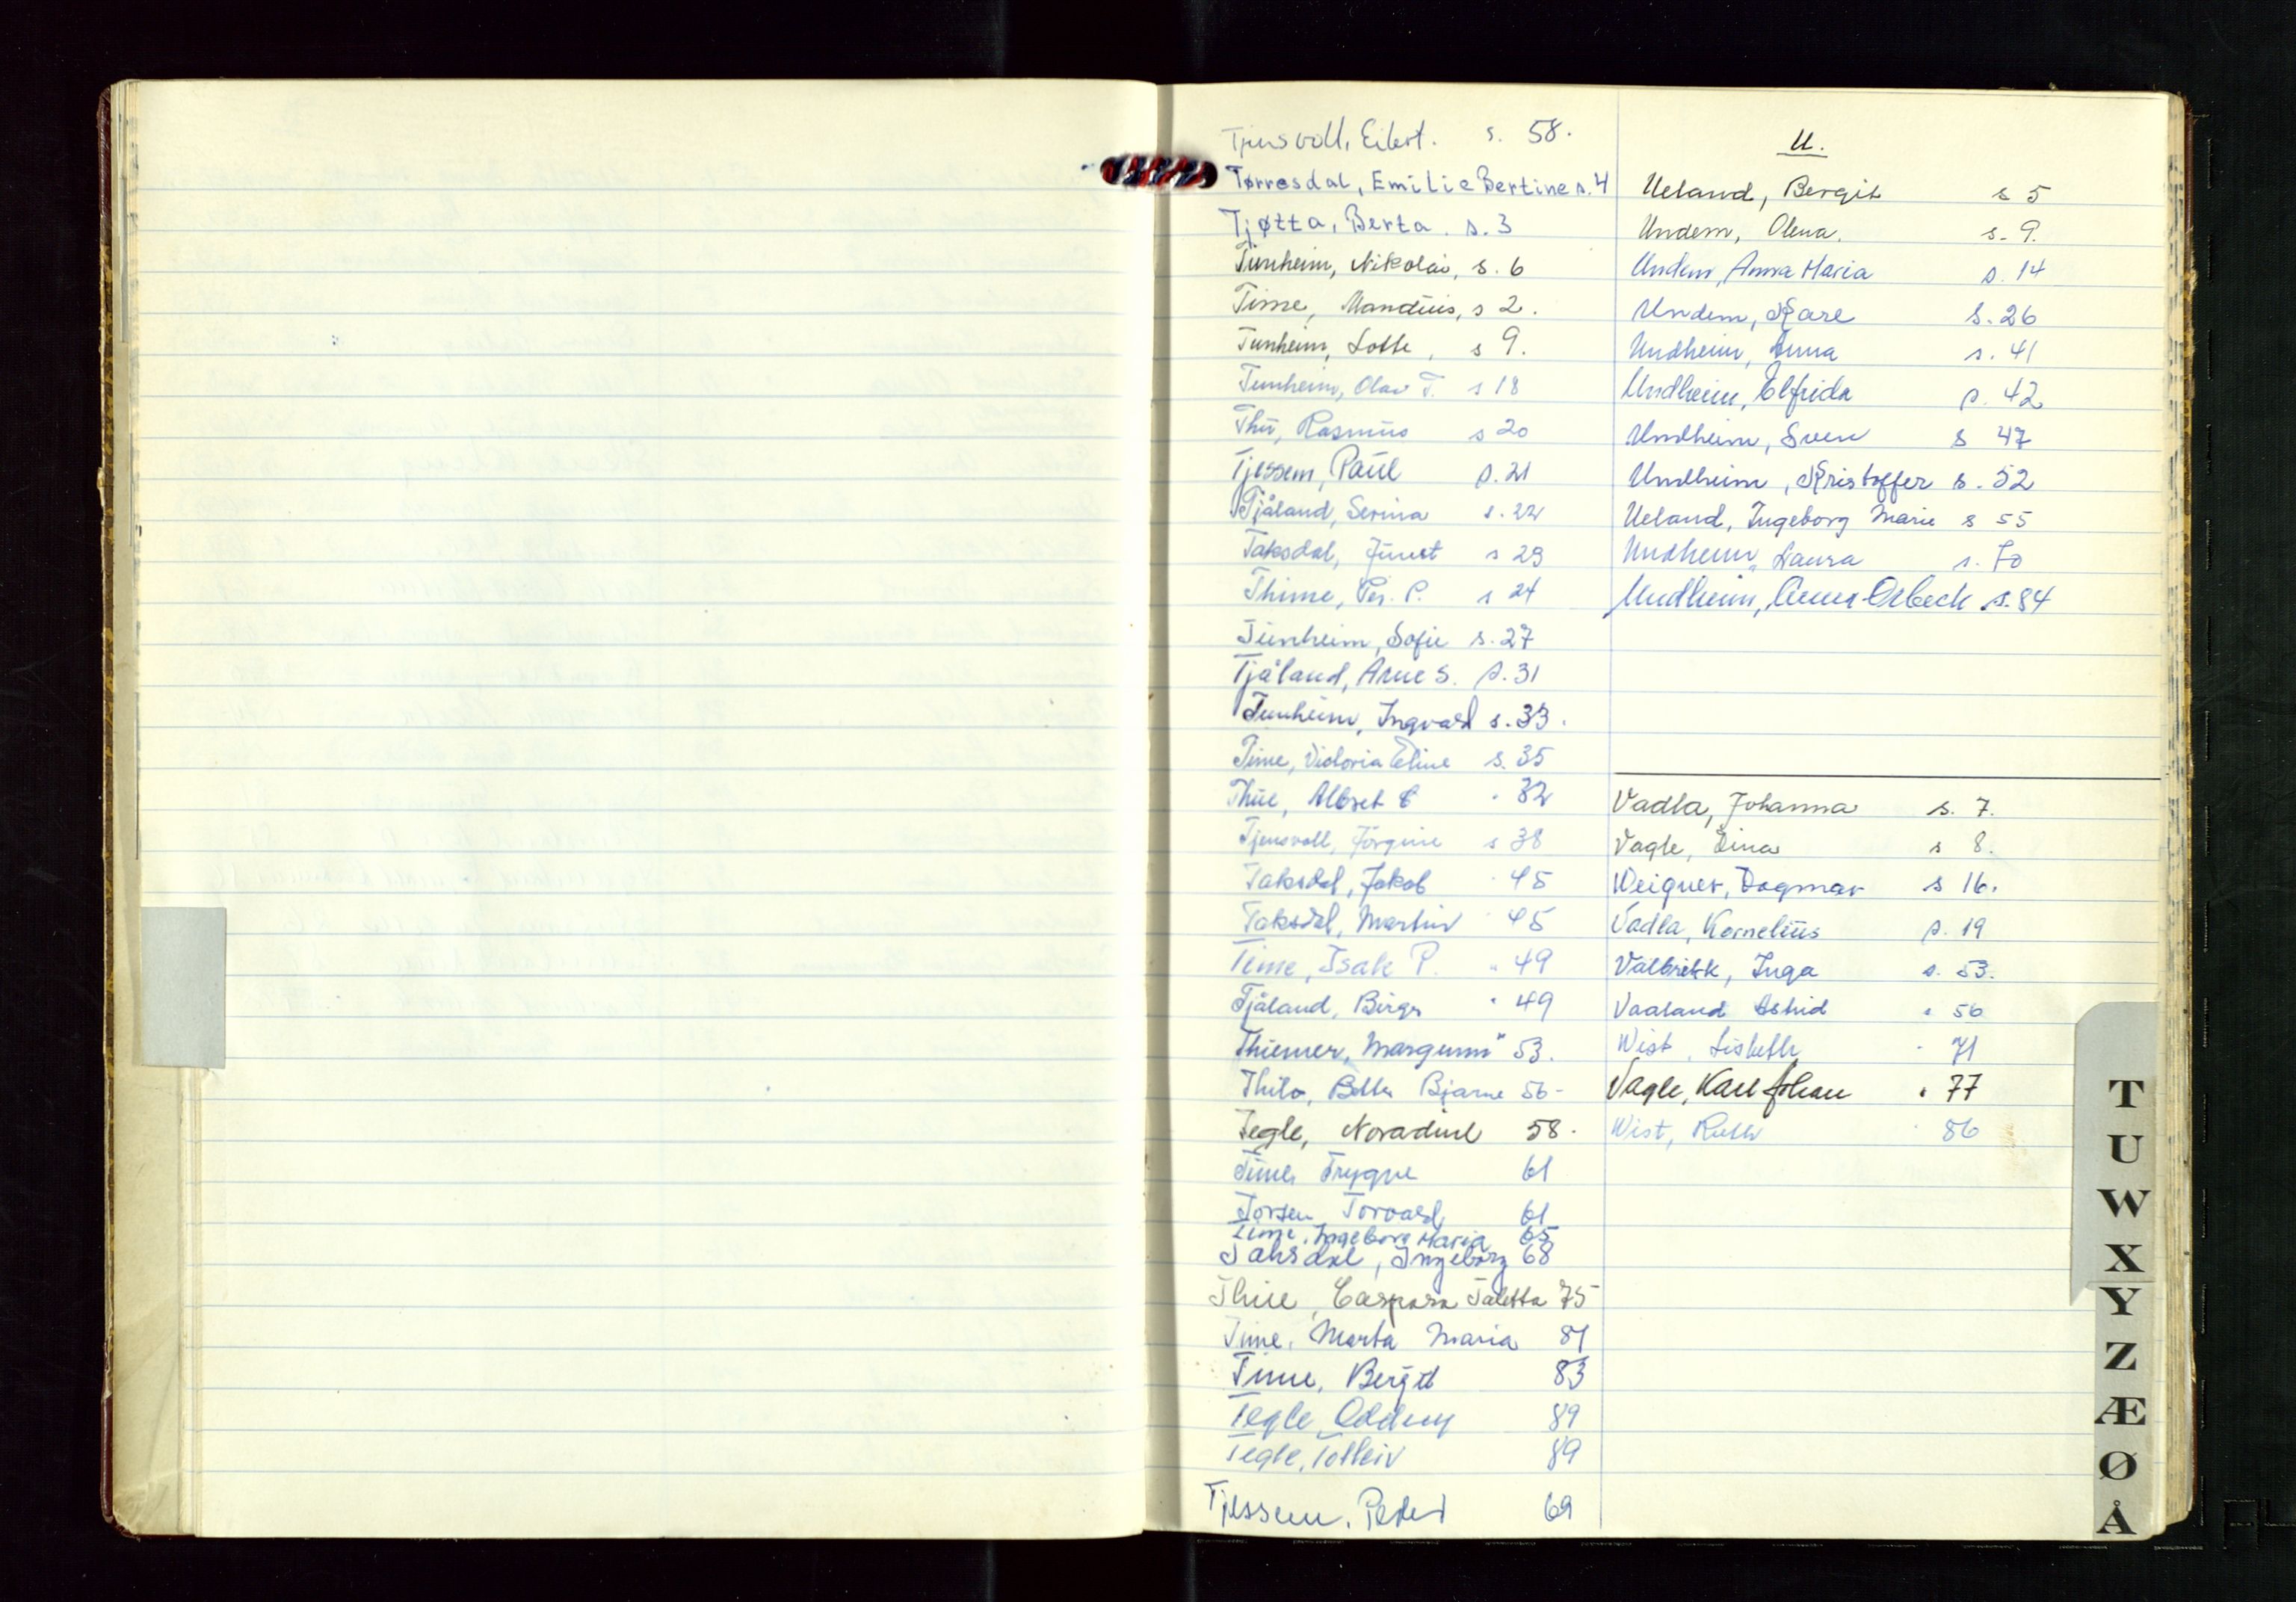 Tjensvoll, Eilert. s. 58.
Tørresdal, Emilie Bertine s. 4
Tjøtta, Berta. s. 3
Tunheim, Nikolai, s. 6
Time, Mandius, s 2.
Tunheim, Lotte, s 9.
Tunheim, Olav T. s 18
Thu, Rasmus s 20
Tjessem, Paul s. 21
Tjåland, Serina s. 22
Taksdal, s 23
Thime, Per. P. s 24
Tunheim, Sofie s. 27
Tjåland, Arne S. s. 31
Tunheim, Ingvald s. 33.
Time, Victoria Eline s. 35
Thue, Albret " 32
Tjensvoll, Jørgine s 38
Taksdal, Jakob " 45
Taksdal, Martin " 45
Time, Isak P. " 49
Tjåland, Birger " 49
Thiemer, Margunn " 53.
Thilo, Bjarne 56-
Tegle, 58.
Time, Trygve 61
Torsen Torvald 61
Time, Ingeborg Maria 65
Taksdal, Ingeborg 68
Thue, Caspara Taletta 75
Time, Marta Maria 81
Time, Bergit 83
Tegle, Oddny 89
Tegle, Tolleiv 89
Tjessem, Peder 69
U.
Ueland, Bergit s 5
Undem, Olena. s. 9.
Undem, Anna Maria s. 14
Undem, Kare s. 26
Undheim, Anna s. 41
Undheim, Elfrida s. 42
Undheim, Sven s 47
Undheim, Kristoffer s. 52
Ueland, Ingeborg Marie s 55
Undheim, Laura s. 70
Undheim, Anna Orbeck s. 84
Vadla, Johanna s. 7.
Vagle, Lina s 8.
Weigner, Dagmar s 16.
Vadla, Kornelius s. 19
Valbrekk, Inga s. 53.
Vaaland Astrid " 56
Wist, Lisbeth " 71
Vagle, Karl Johan " 77
Wist, Ruth " 86
T
U
W
X
Y
Z
Æ
Ø
Å